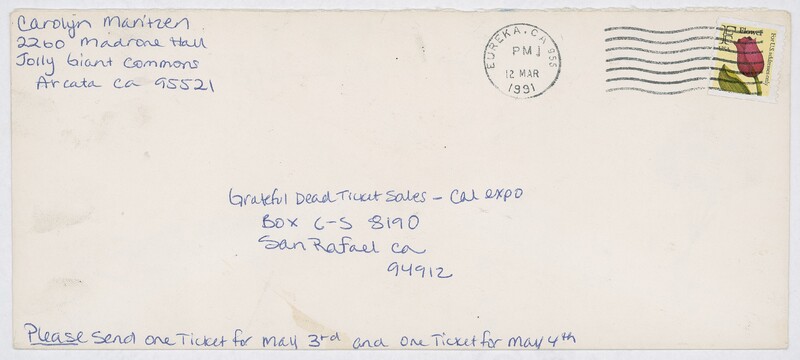 Carolyn Maritzen
2260 Madrone Hall
Jolly Giant Commons
Arcata Ca 95521
EUREKA, CA 955
PM
12 MAR
1991
Flower
For U.S. addresses only
Grateful Dead Ticket Sales - Cal expo
Box C-S 8190
San Rafael ca
94912
Please send one Ticket for May 3rd and one Ticket for May 4th